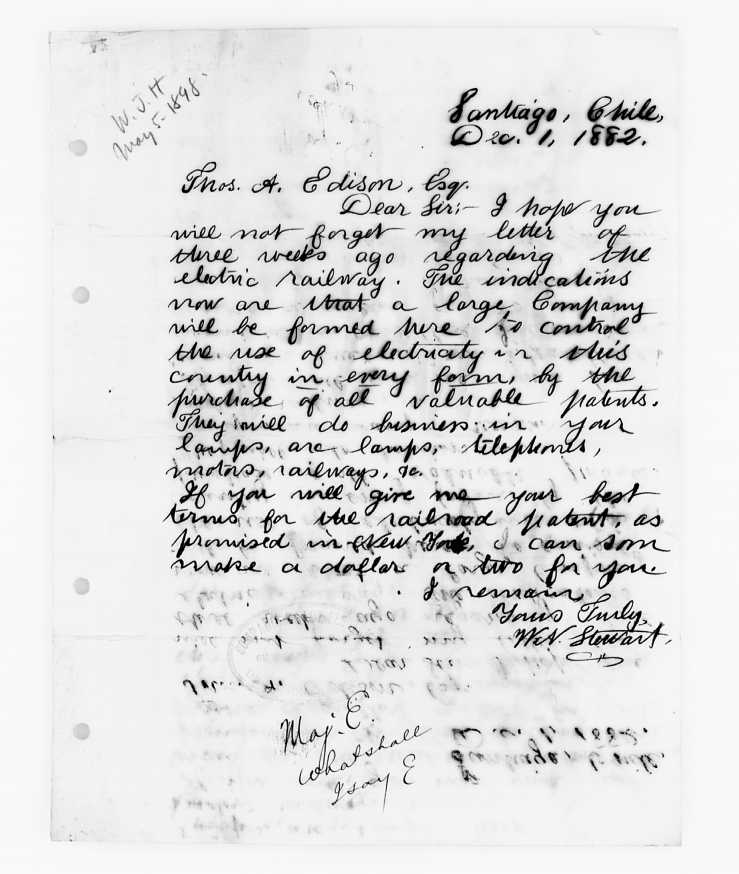 W. J. H
May 5-1898.
Santiago, Chile,
Dec. 1, 1882.
Thos. A. Edison, Esq.
Dear Sir:- I hope you
will not forget my letter of
three weeks ago regarding the
electric railway. The indications
now are that a large Company
will be formed here to control
the use of electricity in this
country in every form, by the
purchase of all valuable patents.
They will do business in your
lamps, arc lamps, telephones,
motors, railways, &c.
If you will give me your best
terms for the railroad patent, as
promised in New York, I can soon
make a dollar or two for you.
I remain
Yours Truly,
W.N. Stewart,
Maj. E.
What shall
I say E